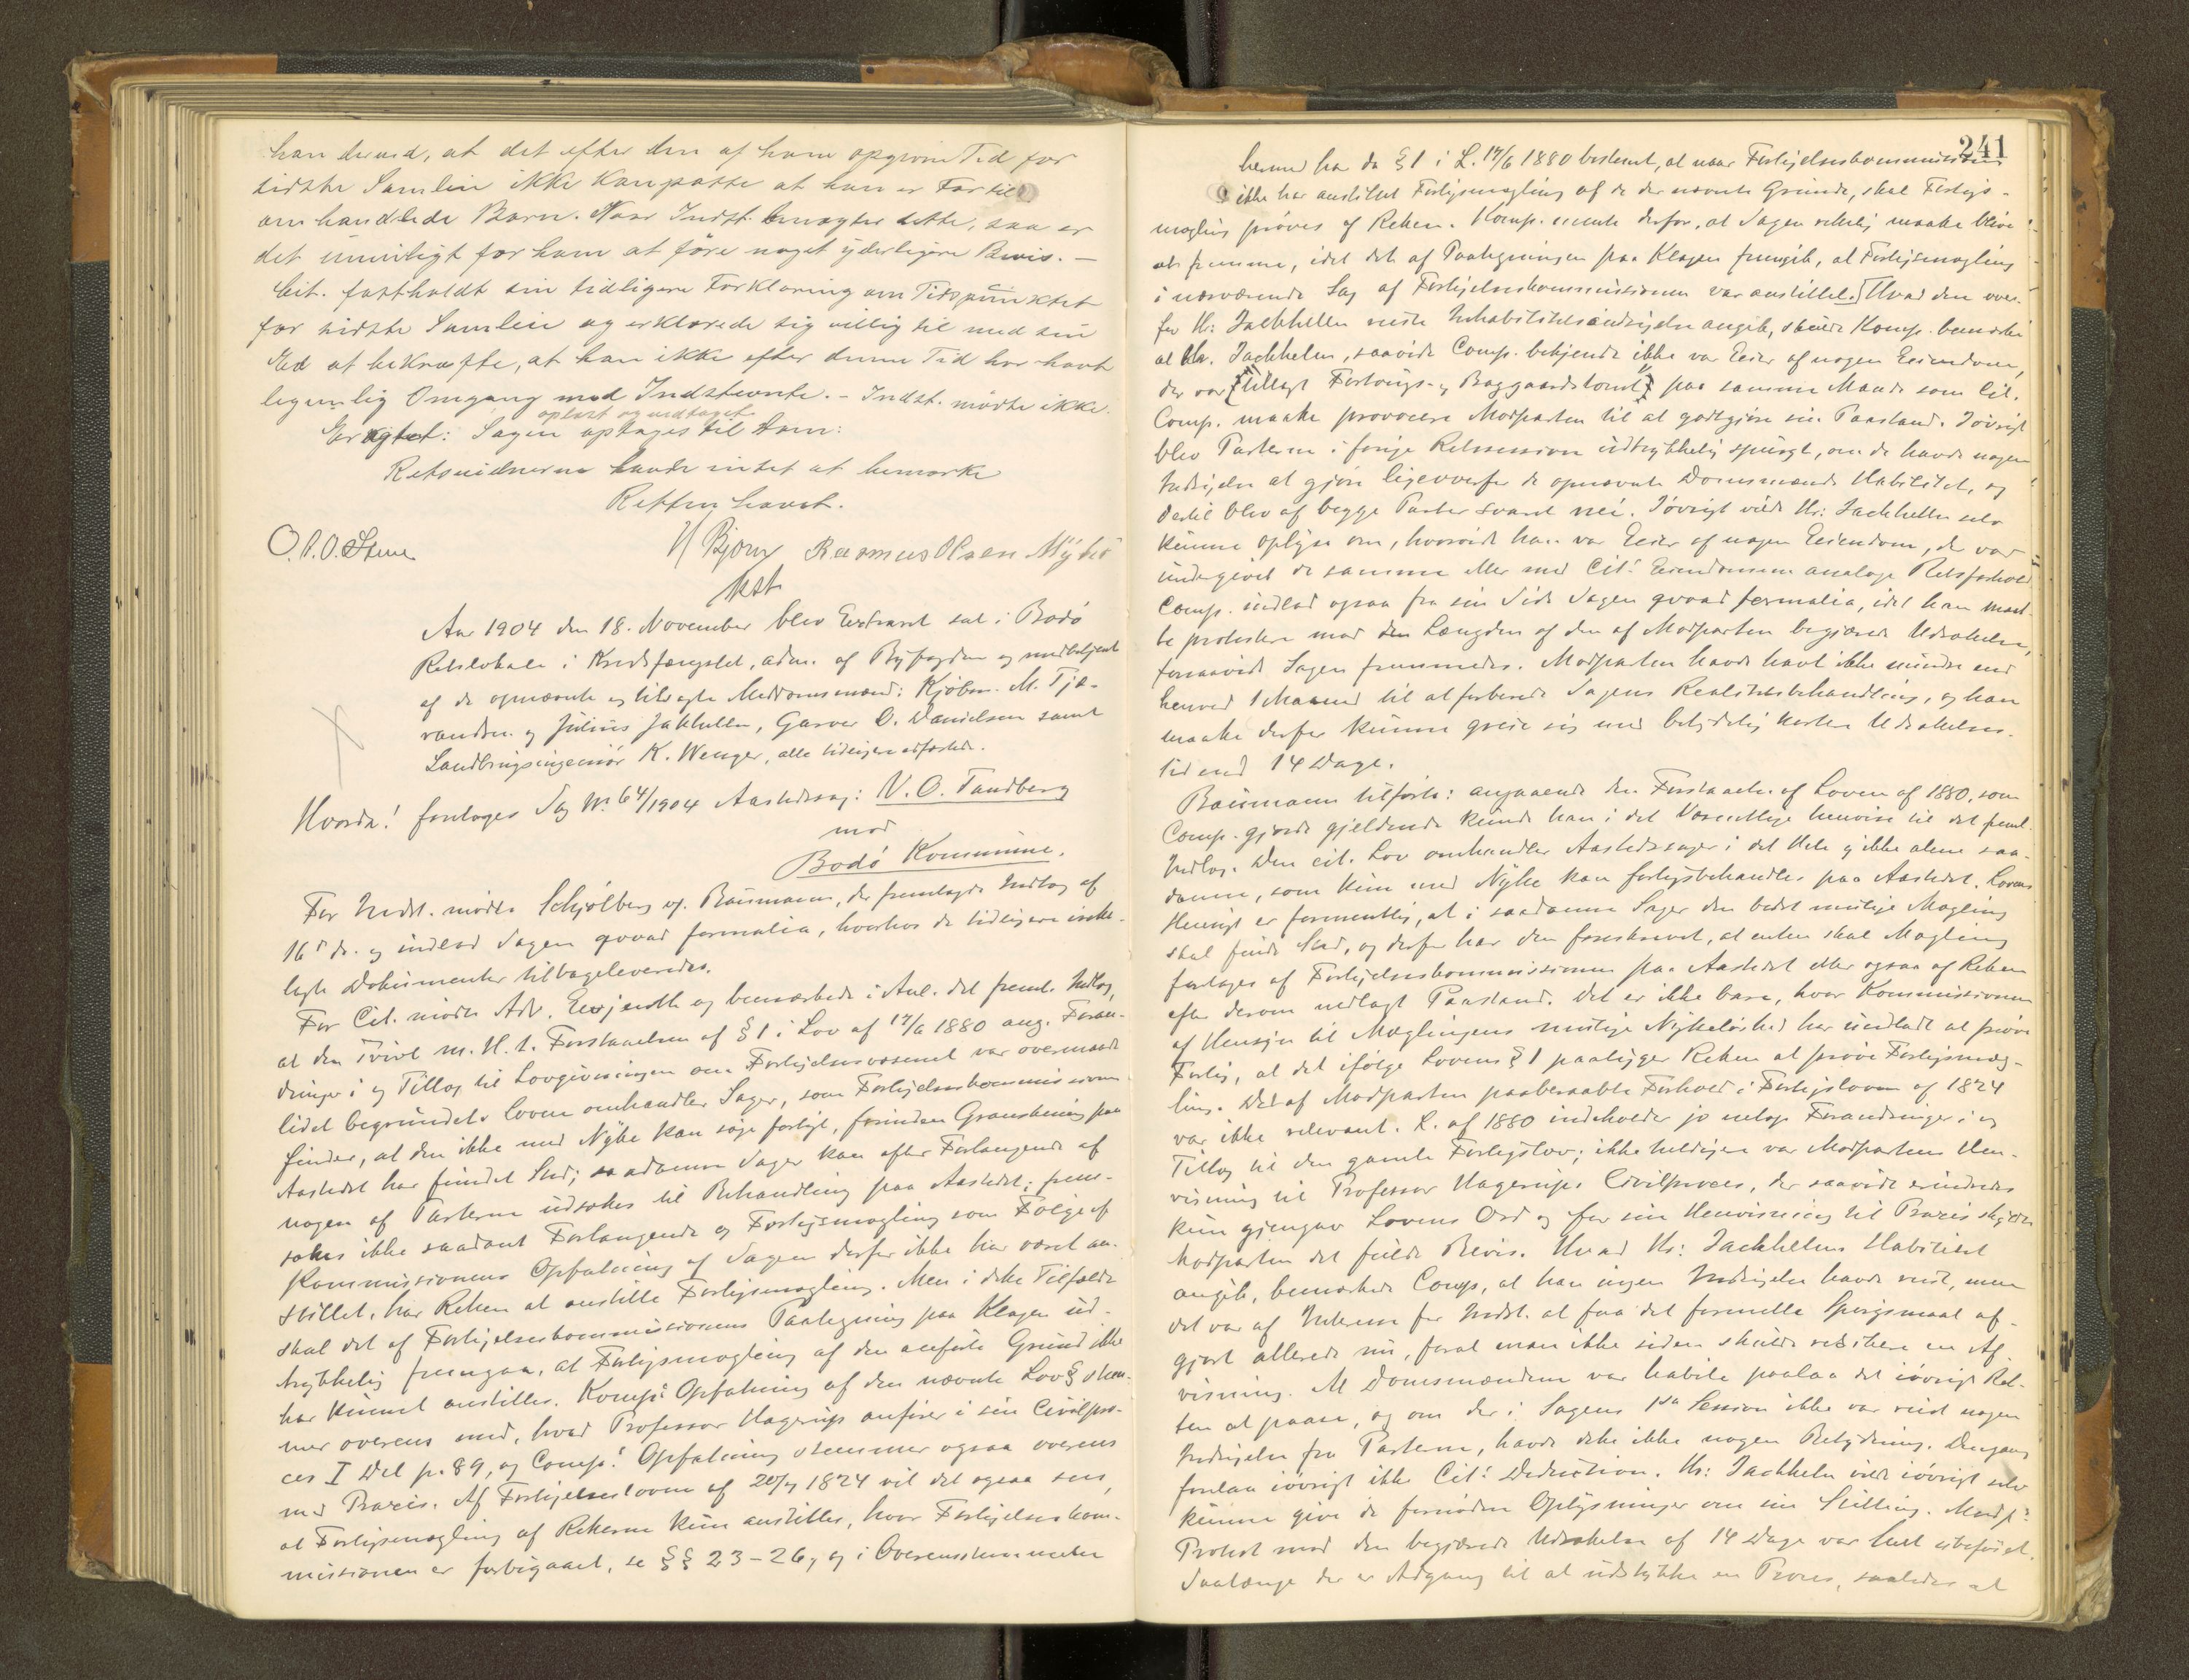 han derved, at det efter den af ham opgivne Tid for
sidste Samleie ikke kan passe at han er Far til
omhandlede Barn. Naar Indst. benægter dette, saa er
det umuligt for ham at före noget yderligere Bevis. –
Cit. fastholdt sin tidligere Forklaring om Tidspunktet
for sidste Samleie og erklærede sig villig til med sin
Ed at bekræfte, at han ikke efter denne Tid har havt
legemlig Omgang med Indstevnte. – Indst. mödte ikke.
oplæst og vedtaget
Eragtet: Sagen optages til Dom:
Retsvidnerne havde intet at bemærke
Retten hævet.
O.P.O. Steen H Bjørn Rasmus Olsen Myhre
kst.
Aar 1904 den 18. November blev Extraret sat i Bodö
Retslokale i Kredsfængslet, adm. af Byfogden og medbetjent
af de opnævnte og tilsagte Meddomsmænd: Kjöbm. M. Tjæ-
randsen og Julius Jakhelln, Garver C. Danielsen samt
Landbrugsingeniör K. Wenger, alle tidligere edfæstede.
Hvorda! foretoges Sag No 64/1904 Aastedssag: N. O. Tandberg
mod
Bodö Kommune.
For Indst. mödte Schjölberg ef. Baumann, der fremlagde Indlæg af
16de ds. og indlod Sagen qvoad formalia, hvorhos de tidligere irette-
lagte Dokumenter tilbageleveredes.
For Cit. mödte Adv. Enejordth og bemærkede i Anl. det freml. Indlæg,
at den Tvivl m. H. t. Forstaaelsen af § 1 i Lov af 17/6 1880 ang. Foran-
dringer i og Tillæg til Lovgivningen om Forligelsesvæsenet var overmaade
lidet begrundet. Loven omhandler Sager, som Forligelseskommissionen
finder, at den ikke med Nytte kan söge forligt, forinden Granskning paa
Aastedet har fundet Sted; saadanne Sager kan efter Forlangende af
nogen af Parterne udsættes til Behandling paa Aastedet; frem-
sættes ikke saadant Forlangende og Forligsmægling som Fölge af
Kommissionens Opfatning af Sagen derfor ikke har været an-
stillet, har Retten at anstille Forligsmægling. Men i dette Tilfælde
skal det af Forligelseskommissionens Paategning paa Klagen ud-
trykkelig fremgaa, at Forligsmægling af den anförte Grund ikke
har kunnet anstilles. Komps. Opfatning af den nævnte Lov§ stem-
mer overens med, hvad Professor Hagerup anförer i sin Civilpro-
ces I Del p. 89, og Comps. Opfatning stemmer ogsaa overens
med Praxis. Af Forligelsesloven af 20/7 1824 vil det ogsaa sees,
at Forligsmægling af Retterne kun anstilles, hvor Forligelseskom-
missionen er forbigaaet, se §§ 23–26, og i Overensstemmelse
241
hermed har da § 1 i L. 17/6 1880 bestemt, at naar Forligelseskommissionen
ikke har anstillet Forligsmægling af de der nævnte Grunde, skal Forligs-
mægling pröves af Retten. Komp. mente derfor, at Sagen rettelig maatte blive
at fremme, idet det af Paategningen paa Klagen fremgik, at Forligsmægling
i nærværende Sag af Forligelseskommissionen var anstillet. Hvad den over-
for Hr. Jackhelln reiste Inhabilitetsindsigelse angik, skulde Komp. bemærke
at Hr. Jackhelln, saavidt Comp. bekjendt ikke var Eier af nogen Eiendom,
der var tillagt Fortougs- og Baggaardstomt paa samme Maade som Cit.
Comp. maatte provocere Modparten til at godtgjöre sin Paastand. Iövrigt
blev Parterne i forige Retssession udtrykkelig spurgt, om de havde nogen
Indsigelse at gjöre ligeoverfor de opnævnte Domsmænds Habilitet, og
dertil blev af begge Parter svaret nei. Iövrigt vilde Hr. Jackhelln selv
kunne oplyse om, hvorvidt han var Eier af nogen Eiendom, der var
undergivet de samme eller med Cit.s Eiendommen analoge Retsforhold.
Comp. indlod ogsaa fra sin Side Sagen qvoad formalia, idet han maat-
te protestere mod den Længden af den af Modparten begjærede Udsættelse,
forsaavidt Sagen fremmedes. Modparten havde havt ikke mindre end
henved 1 Maaned til at forberede Sagens Realitetsbehandling, og han
maatte derfor kunne greie sig med betydelig kortere Udsættelses-
tid end 14 Dage.
Baumann tilförte: angaaende den Forstaaelse af Loven af 1880, som
Comp. gjorde gjeldende kunde han i det Væsentlige henvise til det freml.
Indlæg. Den cit. Lov omhandler Aastedssager i det Hele og ikke alene saa-
danne, som kun med Nytte kan forligsbehandles paa Aastedet. Lovens
Hensigt er formentlig, at i saadanne Sager den bedst mulige Mægling
skal finde Sted, og derfor har den foreskrevet, at enten skal Mægling
foretages af Forligelseskommissionen paa Aastedet eller ogsaa af Retten
efter derom nedlagt Paastand. Det er ikke bare, hvor Kommissionen
af Hensyn til Mæglingens mulige Nytteløshed har undladt at pröve
Forlig, at det ifölge Lovens § 1 paaligger Retten at pröve Forligsmæg-
ling. Det af Modparten paaberaabte Forhold i Forligsloven af 1824
var ikke relevant. L. af 1880 indeholder jo netop Forandringer i og
Tillæg til den gamle Forligslov; ikke heldigere var Modpartens Hen-
visning til Professor Hagerups Civilproces, der saavidt erindredes
kun gjengav Lovens Ord og for sin Henvisning til Praxis skylder
Modparten det fulde Bevis. Hvad Hr. Jackhellns Habilitet
angik, bemærkede Comp, at han ingen Indsigelse havde reist, men
det var af Interesse for Indst. at faa det formelle Spörgsmaal af-
gjort allerede nu, forat man ikke siden skulde risikere en Af-
visning. At Domsmændene var habile paalaa det iövrigt Ret-
ten at paase, og om der i Sagens 1ste Session ikke var reist nogen
Indsigelse fra Parterne, havde dette ikke nogen Betydning. Dengang
forelaa iövrigt ikke Cit.s Deduction. Hr. Jackhelln vilde iövrigt selv
kunne give de fornödne Oplysninger om sin Stilling. Modp.s
Protest mod den begjærede Udsættelse af 14 Dage var helt ubeföiet.
Saalænge der er Adgang til at udstykke en Proces, saaledes at